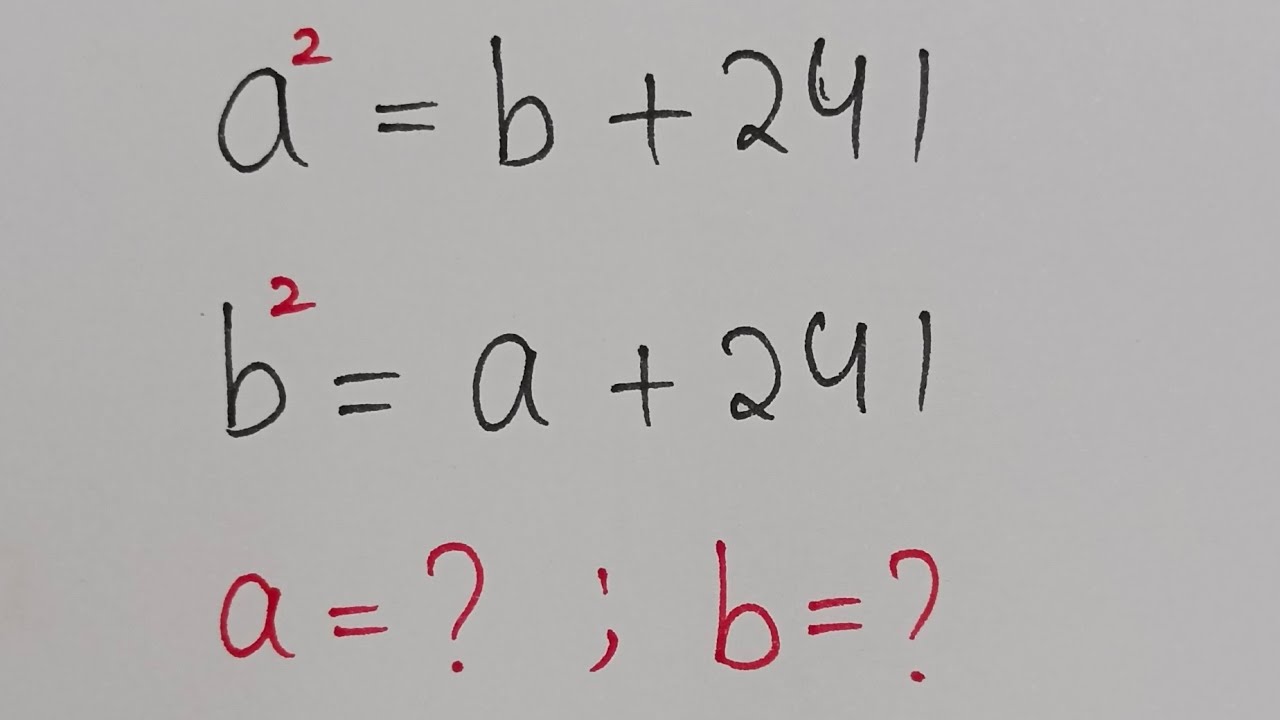 a² = b + 241
b² = a + 241
a = ? ; b = ?